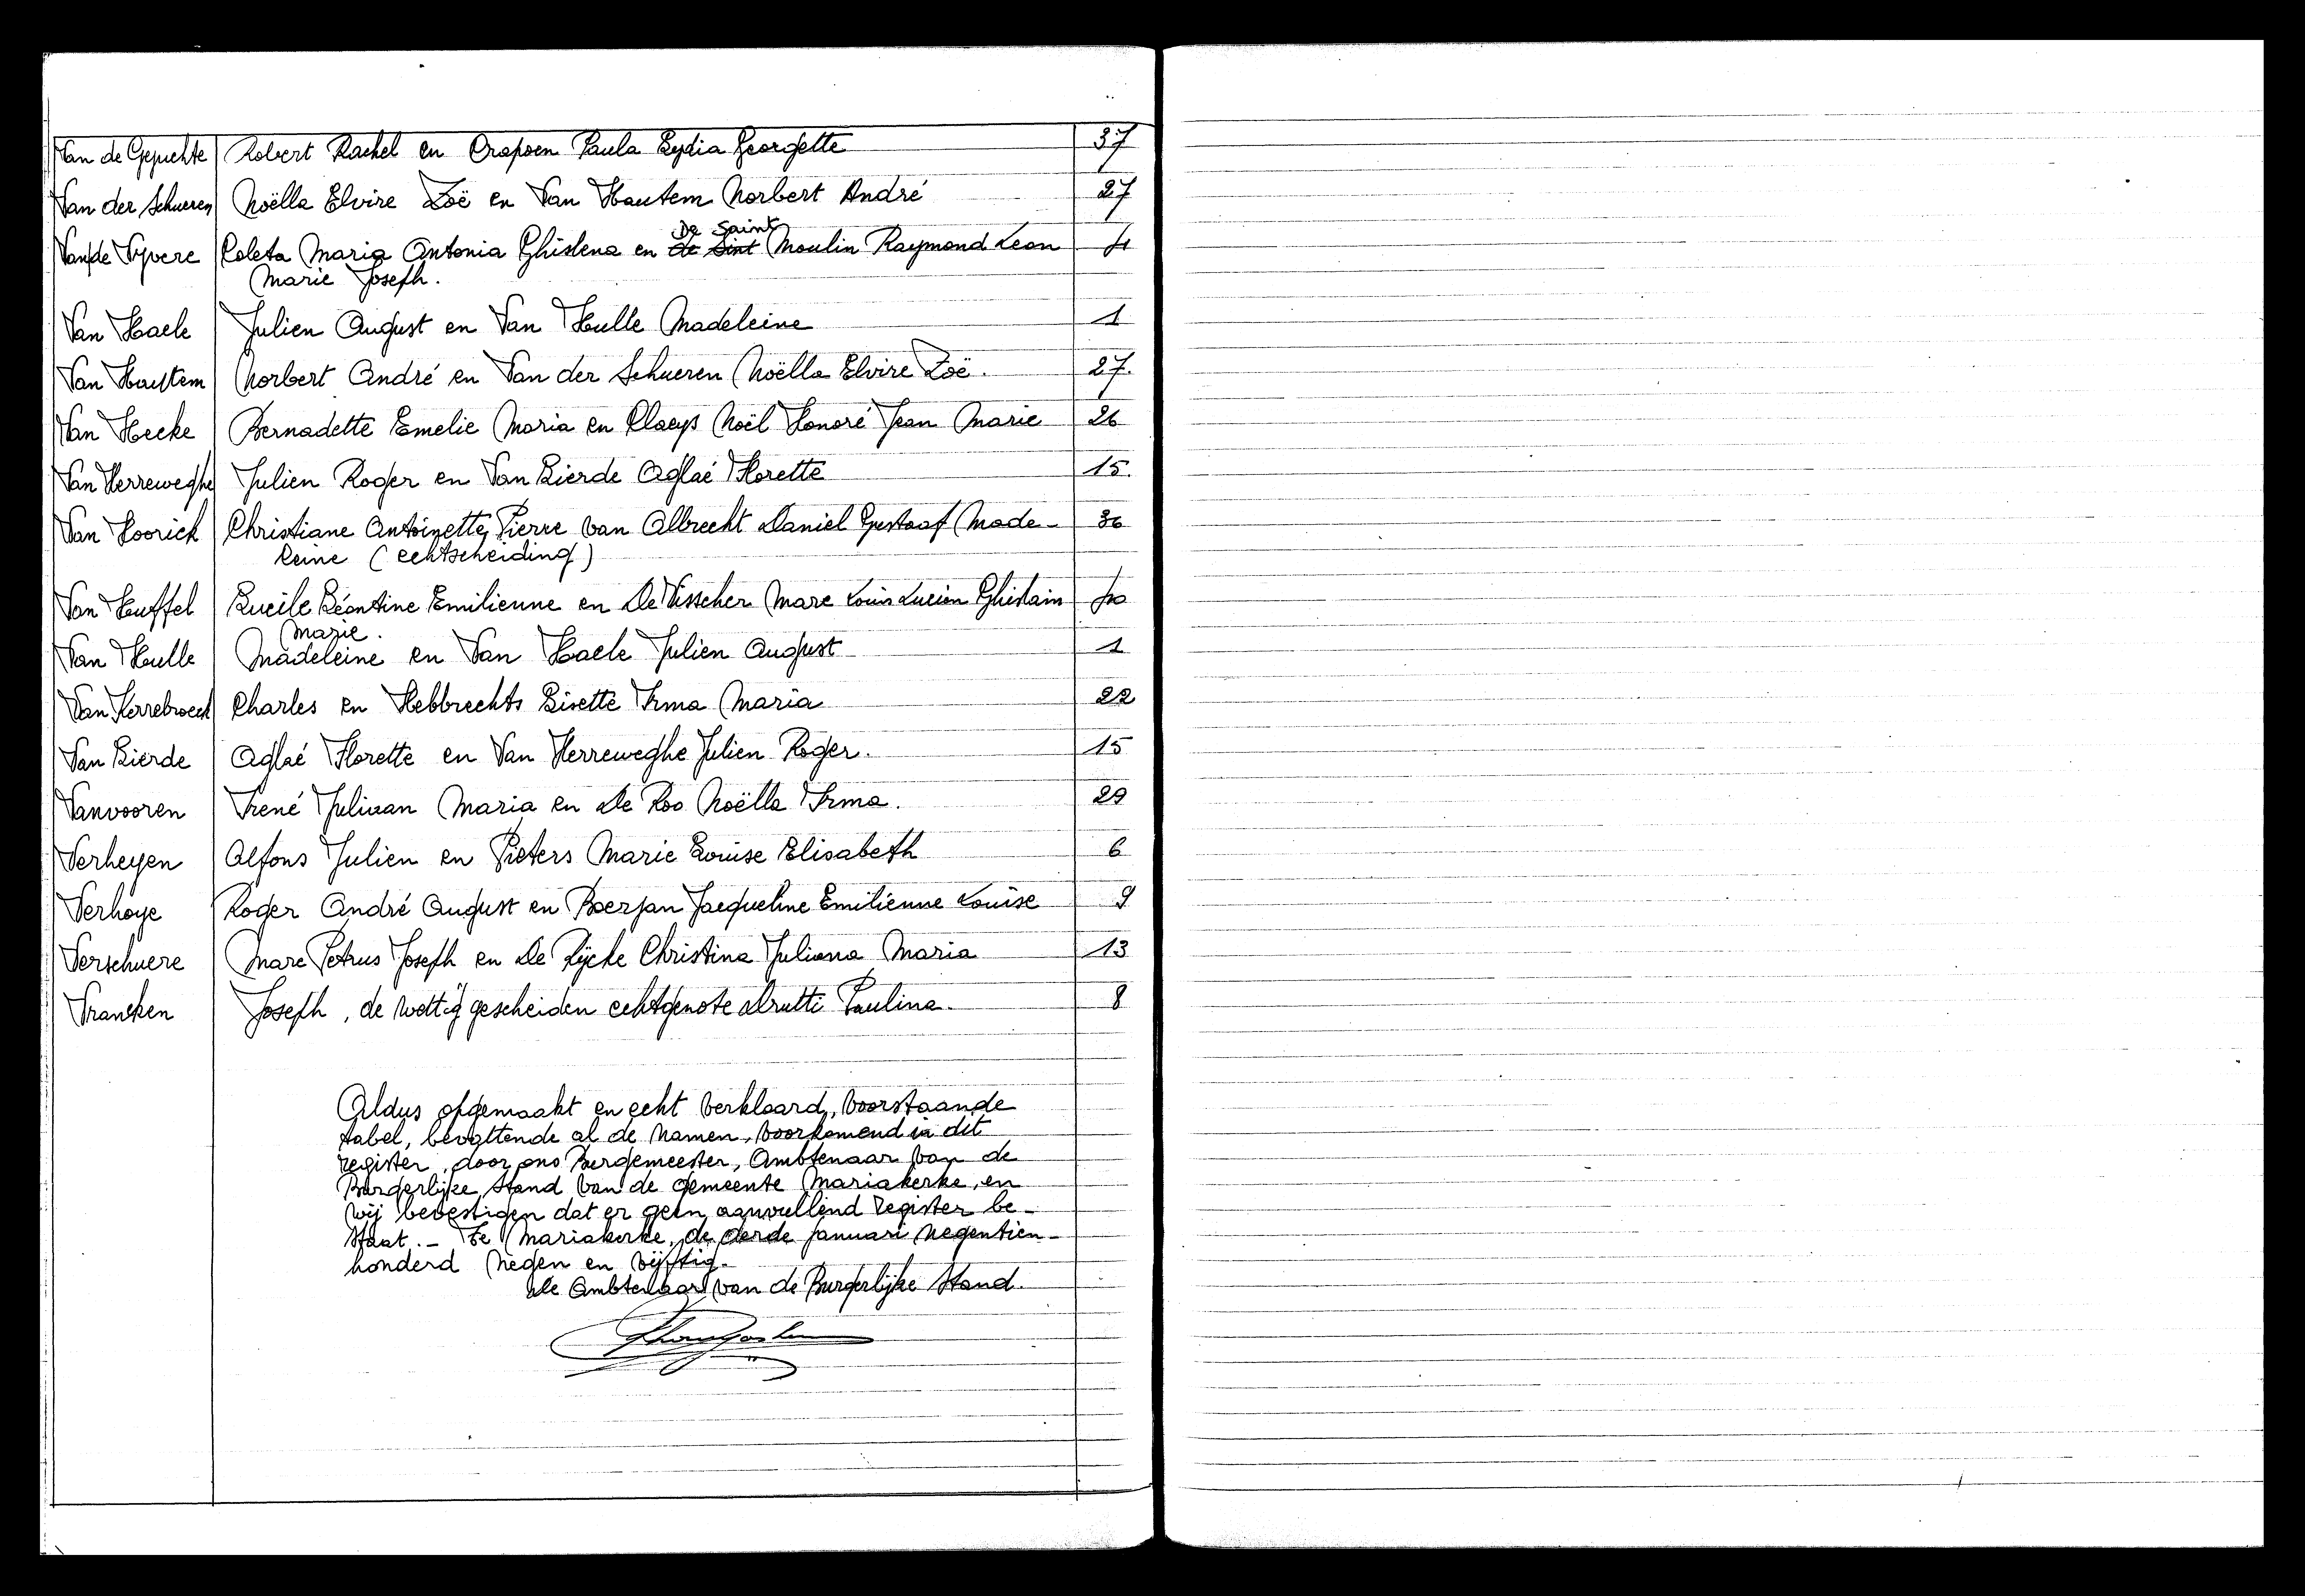 Van de Gejuchte Robert Rachel en Crapoen Paula Lydia Georgette 37
Van der Schueren Noëlla Elvire Zoë en Van Hautem Norbert André 27
De Saint
Van de Vyvere Coleta Maria Antonia Ghislena en de Sint Moulin Raymond Leon 4
Marie Joseph.
Van Haele Julien August en Van Hulle Madeleine 1
Van Hautem Norbert André en Van der Schueren Noëlla Elvire Zoë. 27.
Van Hecke Bernadette Emelie Maria en Claeys Noël Honoré Jean Marie 26
Van Herreweghe Julien Roger en Van Lierde Aglaé Florette 15.
Van Hoorick Christiane Antoinette Pierre van Albrecht Daniel Gustaaf Made- 36
leine (echtscheiding)
Van Huffel Lucile Léontine Emilienne en De Visscher Marc Louis Lucien Ghislain
Marie.
Van Hulle Madeleine en Van Haele Julien August 1
Van Kerrebroeck Charles en Hebbrechts Lisette Irma Maria 22
Van Lierde Aglaé Florette en Van Herreweghe Julien Roger. 15
Vanvooren Irené Juliaan Maria en De Roo Noëlla Irma. 29
Verheyen Alfons Julien en Pieters Marie Louise Elisabeth 6
Verhoye Roger André August en Boerjan Jacqueline Emilienne Louise 9
Verschuere Marc Petrus Joseph en De Rycke Christina Juliana Maria 13
Vrancken Joseph, de wettig gescheiden echtgenote Drutti Paulina. 8
Aldus opgemaakt en echt verklaard, voorstaande
tabel, bevattende al de namen, voorkomend in dit
register, door ons Burgemeester, Ambtenaar van de
Burgerlijke Stand van de gemeente Mariakerke, en
wij bevestigen dat er geen aanvullend register be-
staat.- Te Mariakerke, de derde januari negentien-
honderd negen en vijftig.
De Ambtenaar van de Burgerlijke Stand.